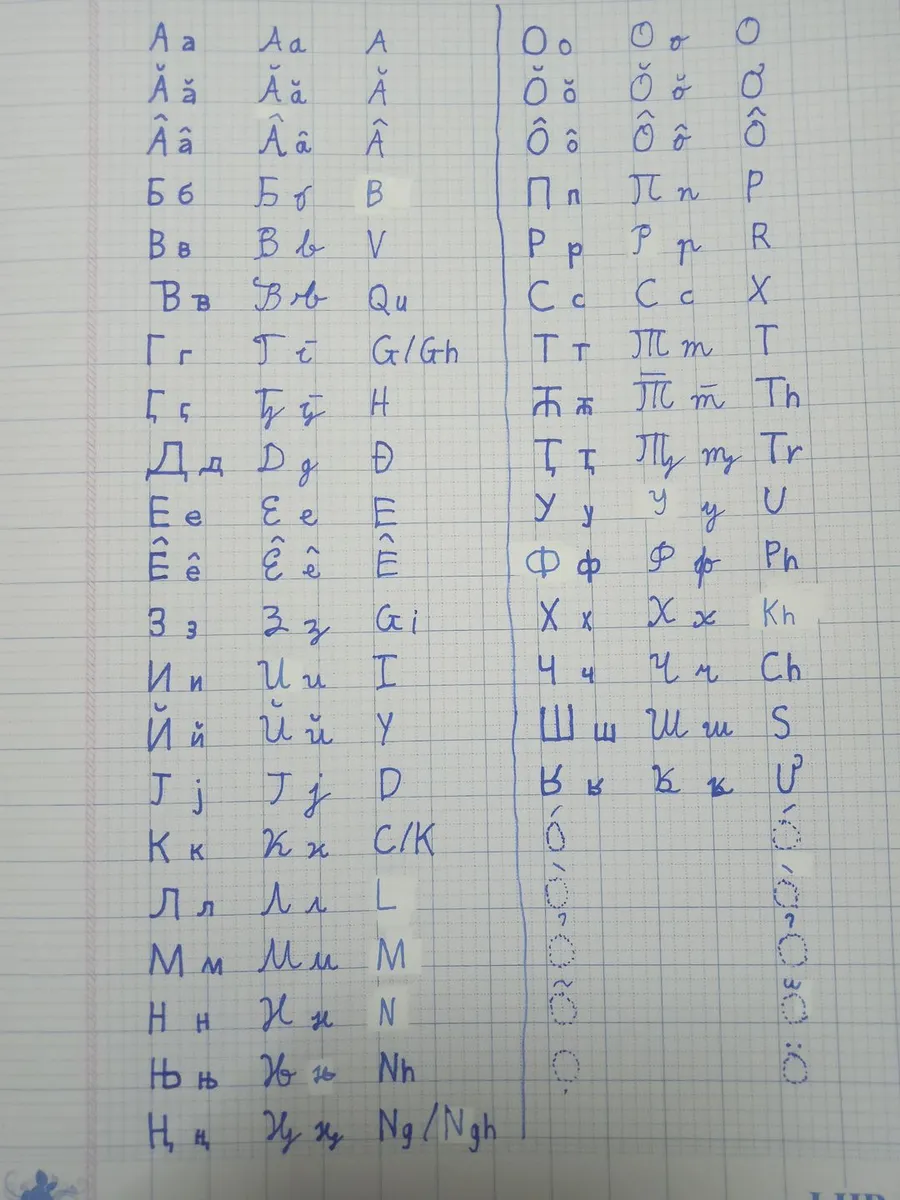 А а А а A
Ă ă Ă ă Ă
Â â Â â Â
Б б Б б B
В в В в V
В в В в Qu
Г г Г г G/Gh
Ӷ ӷ Ӷ ӷ H
Д д Д д Đ
Е е Е е E
Ê ê Ê ê Ê
З з З з Gi
И и И и I
Й й Й й Y
Ј ј Ј ј D
К к К к C/K
Л л Л л L
М м М м M
Н н Н н N
Њ њ Њ њ Nh
Ң ң Ң ң Ng/Ngh
О о О о O
Ŏ ŏ Ŏ ŏ Ơ
Ô ô Ô ô Ô
П п П п P
Р р Р р R
С с С с X
Т т Т т T
Th
Ҭ ҭ Ҭ ҭ Tr
У у У у U
Ф ф Ф ф Ph
Х х Х х Kh
Ч ч Ч ч Ch
Ш ш Ш ш S
Ư